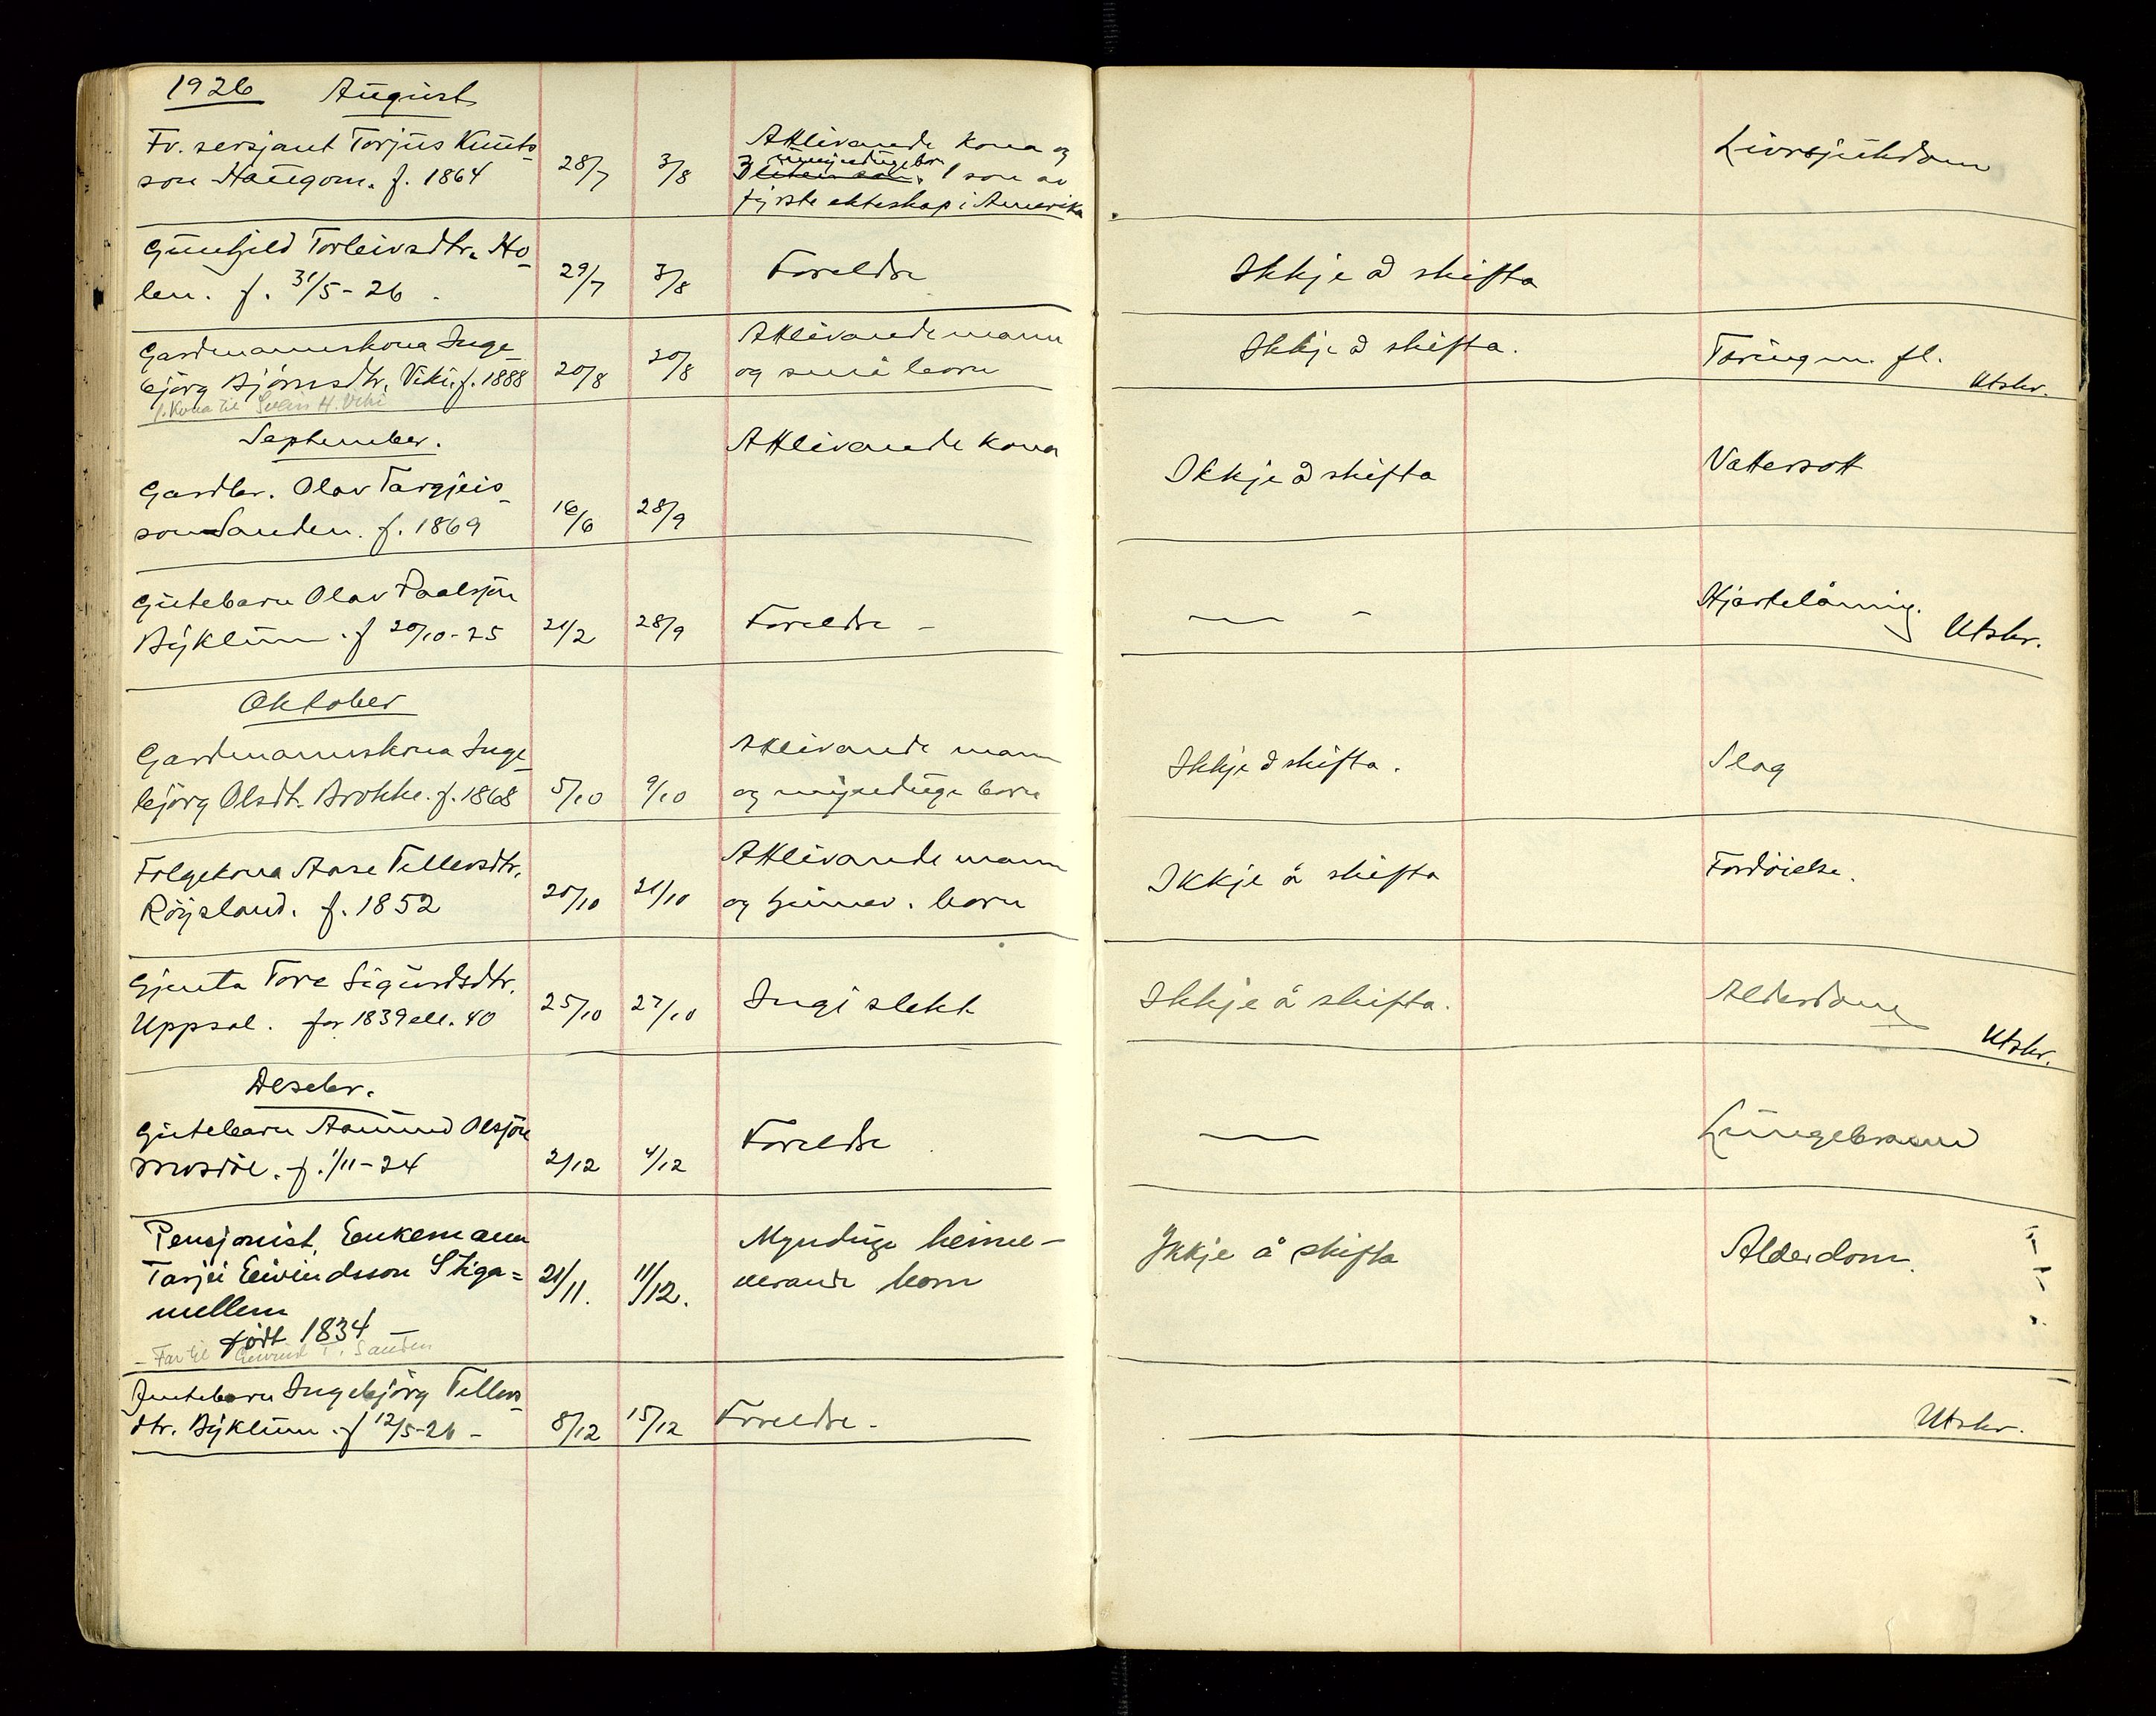 1926 August
Fv. sersjant Torjus Knuts-
son Haugom. f. 1864
28/7
3/8
Attlivande kona og
3 umyndige born
liten son. 1 son av
fyrste ekteskap i Amerika
Livrsjukdom
Gunhild Torleivsdtr. Ho-
len. f. 31/5-26.
29/7
3/8
Foreldre
Ikkje å skifta
Gardmannskona Inge-
björg Björnsdtr. Viki. f. 1888
f. Kona til H. Viki
20/8
20/8
Attlivande mann
og små born
Ikkje å skifta.
Tæring m. fl.
Utskr.
September.
Gardbr. Olav Targjeis-
son Sanden. f. 1869
16/6
28/9
Attlivande kona
Ikkje å skifta
Vattersott
Gutebarn Olav Paalsson
Byklum. f 20/10-25
21/2
28/9
Foreldre -
— -
Hjartelåming.
Utskr.
Oktober
Gardmannskona Inge-
björg Olsdt. Brokke. f. 1868
5/10
9/10
Attlivande mann
og mynduge born
Ikkje å skifta.
Slag
Folgekona Aase Tellevsdtr.
Röysland. f. 1852
20/10
21/10
Attlivande mann
og heimev. born
Ikkje å skifta
Fordöielse.
Gjenta Tore Sigurdsdtr.
Uppsal. før 1839 ell. 40
25/10
27/10
Ingi slekt
Ikkje å skifta.
Alderdom
Utskr.
Desebr.
Gutebarn Aamund Olsson
Mosdöl. f. 1/11-24
2/12
4/12
Foreldre
—
Lungebrand
Pensjonist, Enkemann
Tarjei Eivindsson Stiga=
mellem
født 1834 —
- Far til Eivind T. Sanden
21/11.
11/12.
Myndige heime-
verande born
Ikkje å skifta
Alderdom.
Jentebarn Ingebjörg Tellevs-
dtr. Byklum. f 12/5-26 -
8/12
15/12
Foreldre -
Utskr.